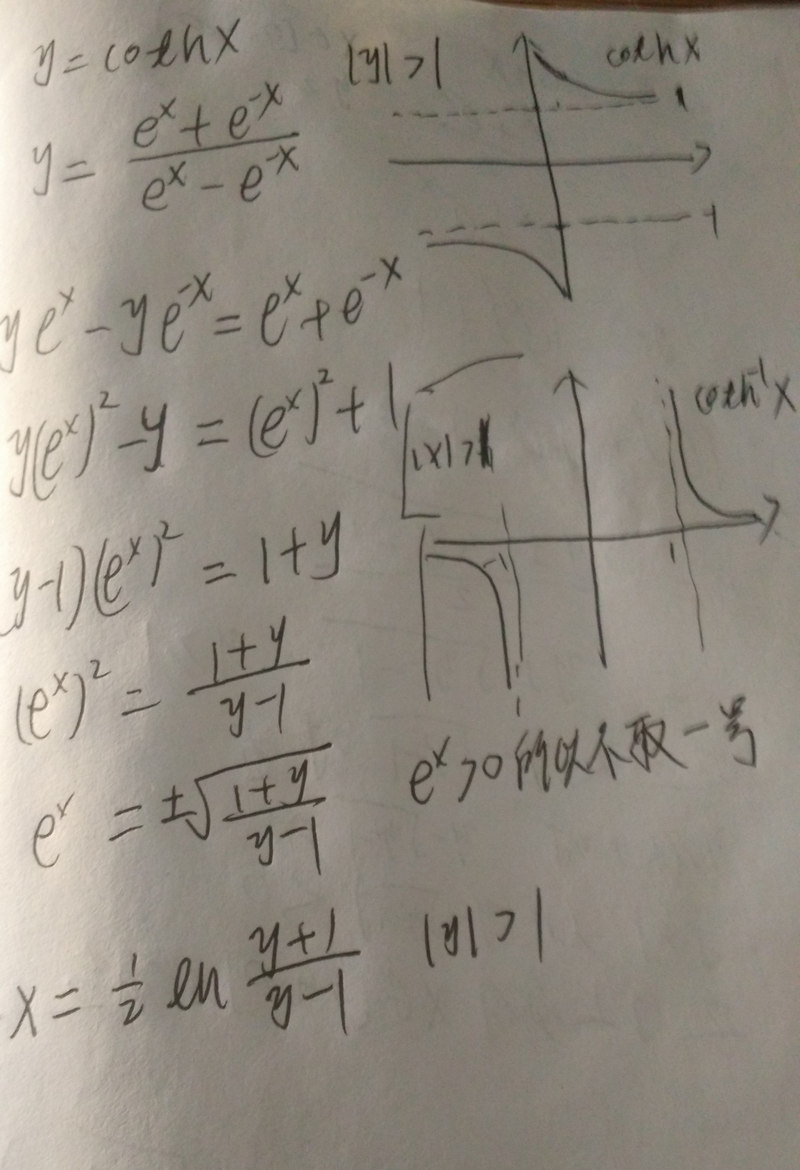 y = cothx
|y| > 1
cothx
1
-1
y = \frac{e^x + e^{-x}}{e^x - e^{-x}}
ye^x - ye^{-x} = e^x + e^{-x}
y(e^x)^2 - y = (e^x)^2 + 1
|x| > 1
coth^{-1}x
-1
1
y-1)(e^x)^2 = 1+y
(e^x)^2 = \frac{1+y}{y-1}
e^x = ±\sqrt{\frac{1+y}{y-1}}
e^x>0所以不取一号
x = \frac{1}{2} ln \frac{y+1}{y-1}
|y| > 1